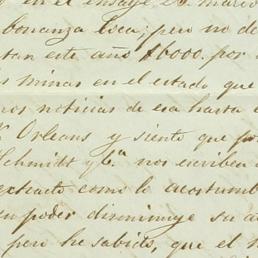 en el ensaye, S. Mario
bonanza Esca; pero no de
tan este año $6000. por
minas en el estado que
nos noticias de esa hasta
Orleans y siento que
Schmidt y Ca nos escriben
extracto como lo acostumb
en poder disminuye su a
pero he sabido, que el